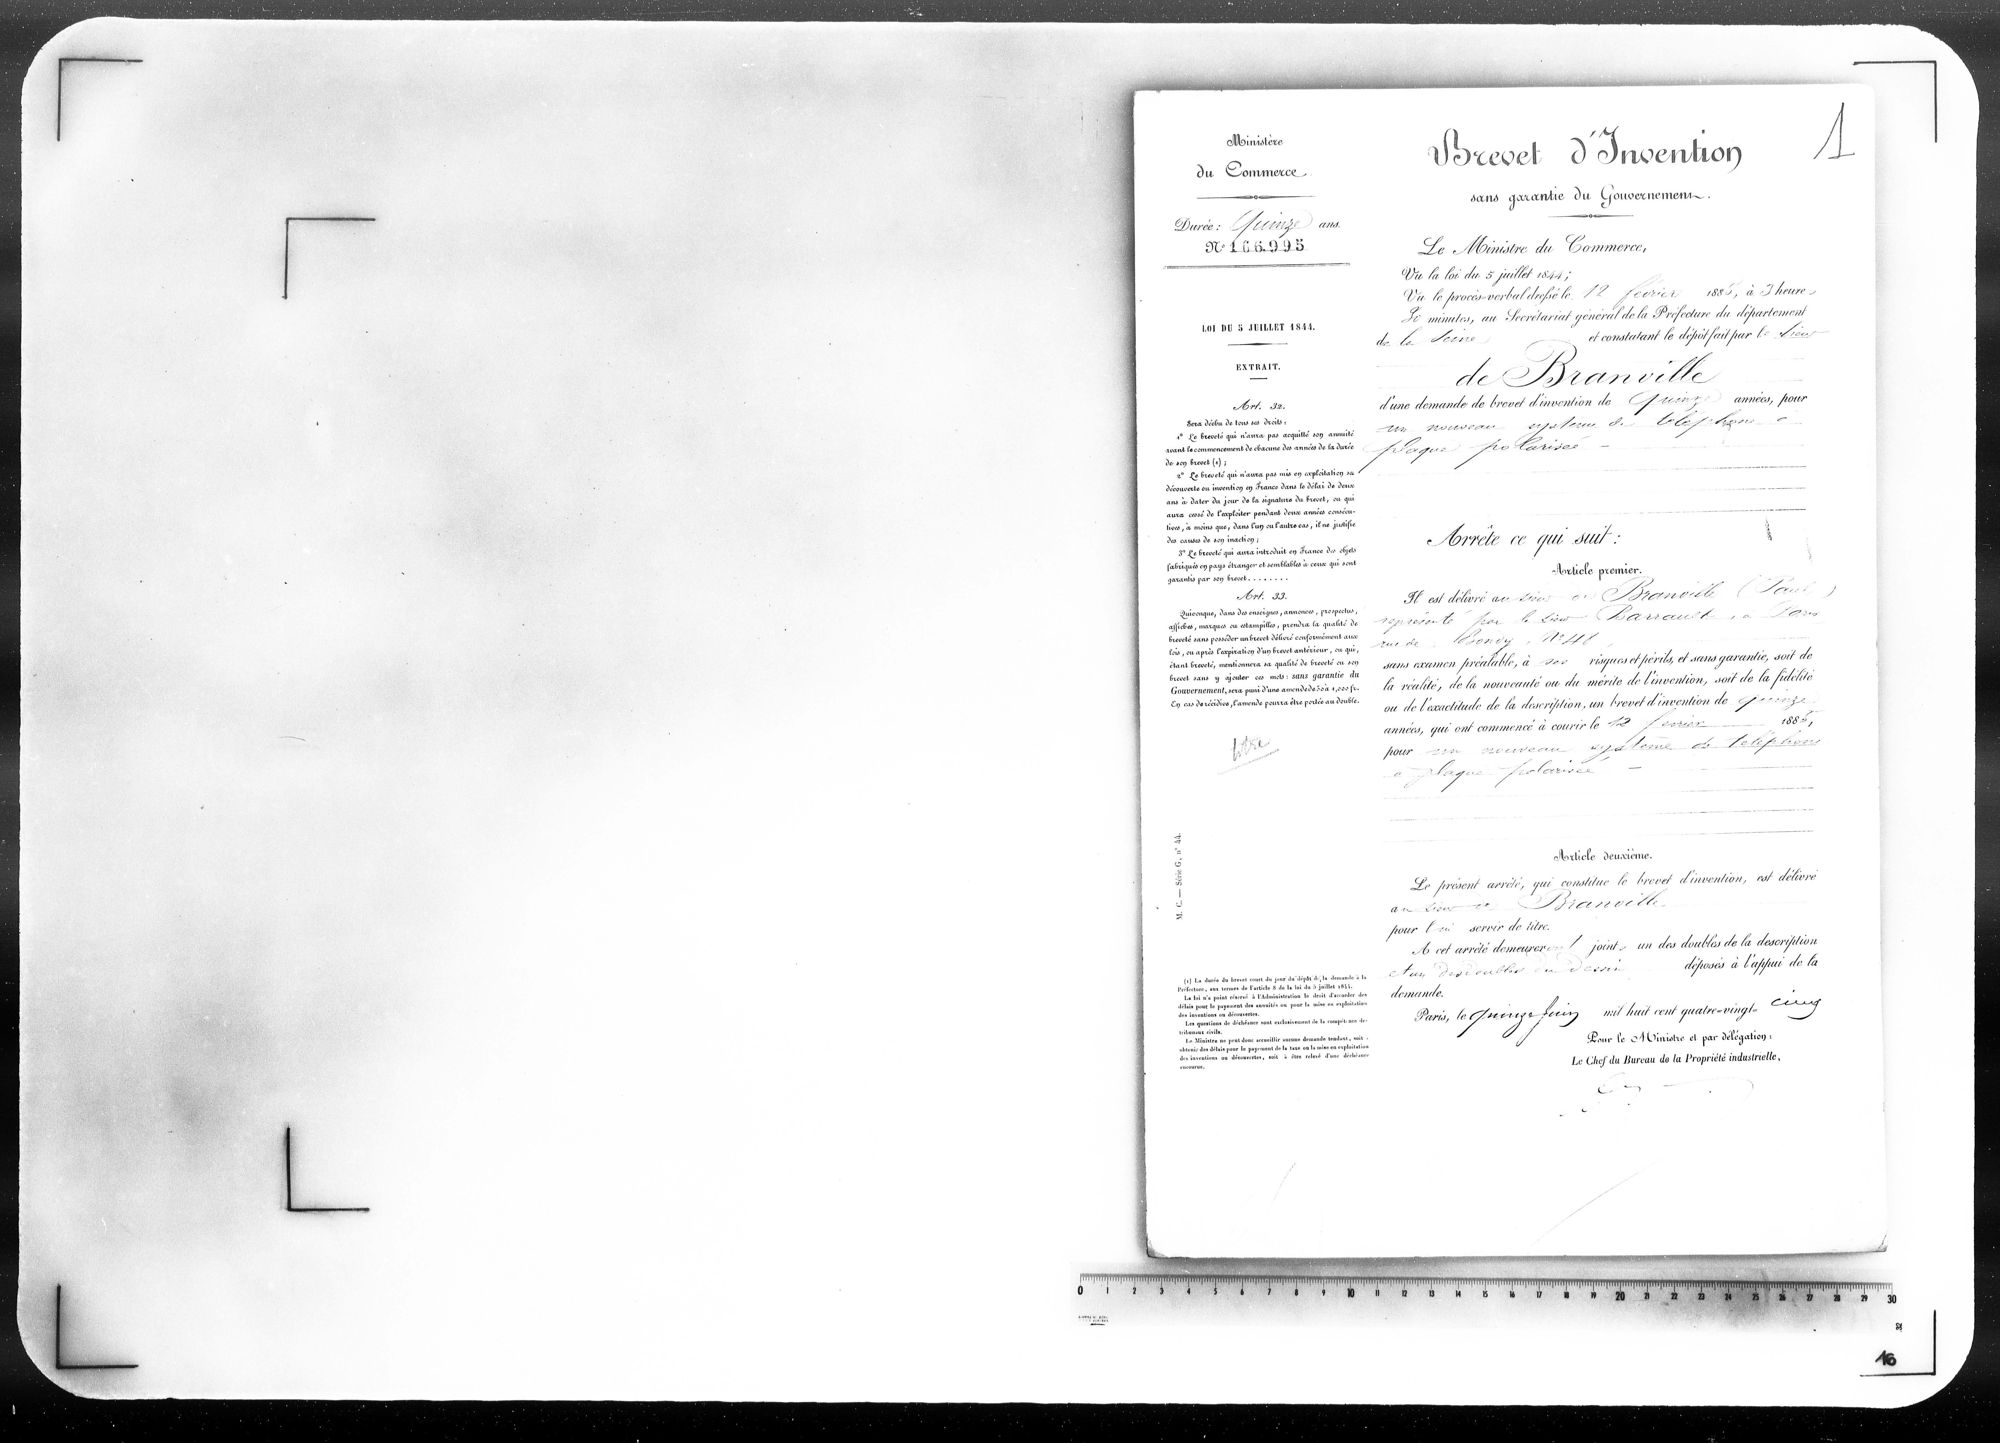 Ministère
du Commerce.
Durée : Quinze ans.
N° 166.995
LOI DU 5 JUILLET 1844.
EXTRAIT.
Art. 32.
Sera déchu de tous ses droits :
1° Le breveté qui n'aura pas acquitté son annuité
avant le commencement de chacune des années de la durée
de son brevet (1) ;
2° Le breveté qui n'aura pas mis en exploitation sa
découverte ou invention en France dans le délai de deux
ans à dater du jour de la signature du brevet, ou qui
aura cessé de l'exploiter pendant deux années consécu-
tives, à moins que, dans l'un ou l'autre cas, il ne justifie
des causes de son inaction ;
3° Le breveté qui aura introduit en France des objets
fabriqués en pays étranger et semblables à ceux qui sont
garantis par son brevet........
Art. 33.
Quiconque, dans des enseignes, annonces, prospectus,
affiches, marques ou estampilles, prendra la qualité de
breveté sans posséder un brevet délivré conformément aux
lois, ou après l'expiration d'un brevet antérieur, ou qui,
étant breveté, mentionnera sa qualité de breveté ou son
brevet sans y ajouter ces mots : sans garantie du
Gouvernement, sera puni d'une amende de 50 à 1,000 fr.
En cas de récidive, l'amende pourra être portée au double.
M. C. — Série G, n° 44.
(1) La durée du brevet court du jour du dépôt de la demande à la
Préfecture, aux termes de l'article 8 de la loi du 5 juillet 1844.
La loi n'a point réservé à l'Administration le droit d'accorder des
délais pour le payement des annuités ou pour la mise en exploitation
des inventions ou découvertes.
Les questions de déchéance sont exclusivement de la compétence des
tribunaux civils.
Le Ministre ne peut donc accueillir aucune demande tendant, soit à
obtenir des délais pour le payement de la taxe ou la mise en exploitation
des inventions ou découvertes, soit à être relevé d'une déchéance
encourue.
1
Brevet d'Invention
sans garantie du Gouvernement.
Le Ministre du Commerce,
Vu la loi du 5 juillet 1844 ;
Vu le procès-verbal dressé le 12 février 1885, à 3 heures
minutes, au Secrétariat général de la Préfecture du département
de la Seine et constatant le dépôt fait par le Sieur
de Branville
d'une demande de brevet d'invention de quinze années, pour
un nouveau système de téléphone à
plaque polarisée —
Arrête ce qui suit :
Article premier.
Il est délivré au sieur de Branville (Paul)
représenté par le sieur Barrault, à Paris
rue de Bondy, N°
sans examen préalable, à ses risques et périls, et sans garantie, soit de
la réalité, de la nouveauté ou du mérite de l'invention, soit de la fidélité
ou de l'exactitude de la description, un brevet d'invention de quinze
années, qui ont commencé à courir le 12 février 1885,
pour un nouveau système de téléphone
à plaque polarisée —
Article deuxième.
Le présent arrêté, qui constitue le brevet d'invention, est délivré
au sieur de Branville
pour lui servir de titre.
A cet arrêté demeureront joints un des doubles de la description
et un des doubles du dessin déposés à l'appui de la
demande.
Paris, le quinze juin mil huit cent quatre-vingt-cinq
Pour le Ministre et par délégation :
Le Chef du Bureau de la Propriété industrielle,
0 1 2 3 4 5 6 7 8 9 10 11 12 13 14 15 16 17 18 19 20 21 22 23 24 25 26 27 28 29 30
16